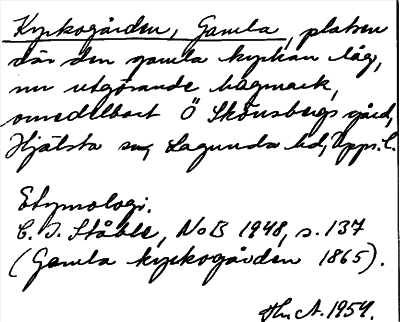 Kyrkogården, Gamla, platsen
där den gamla kyrkan låg,
nu utgörande hagmark,
omedelbart Ö Skönsbergs gård,
Hjälsta sn, Lagunda hd, Upps. l.
Etymologi.
C. I. Ståhle, NoB 1948, s. 137
(Gamla kyrkogården 1865).
A. 1954.